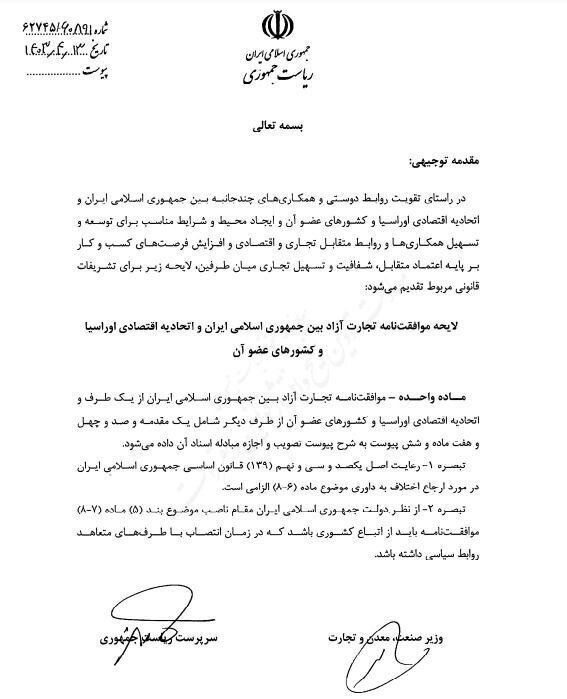 شماره ۶۲۷۴۵/۶۰۸۹۱
تاریخ ۱۴۰۳.۴.۱۳
پیوست
جمهوری اسلامی ایران
ریاست جمهوری
بسمه تعالی
مقدمه توجیهی:
در راستای تقویت روابط دوستی و همکاری‌های چندجانبه بین جمهوری اسلامی ایران و
اتحادیه اقتصادی اوراسیا و کشورهای عضو آن و ایجاد محیط و شرایط مناسب برای توسعه و
تسهیل همکاری‌ها و روابط متقابل تجاری و اقتصادی و افزایش فرصت‌های کسب و کار
بر پایه اعتماد متقابل، شفافیت و تسهیل تجاری میان طرفین، لایحه زیر برای تشریفات
قانونی مربوط تقدیم می‌شود:
لایحه موافقت‌نامه تجارت آزاد بین جمهوری اسلامی ایران و اتحادیه اقتصادی اوراسیا
و کشورهای عضو آن
ماده واحده – موافقت‌نامه تجارت آزاد بین جمهوری اسلامی ایران از یک طرف و
اتحادیه اقتصادی اوراسیا و کشورهای عضو آن از طرف دیگر شامل یک مقدمه و صد و چهل و
هفت ماده و شش پیوست به شرح پیوست تصویب و اجازه مبادله اسناد آن داده می‌شود.
تبصره ۱- رعایت اصل یکصد و سی و نهم (۱۳۹) قانون اساسی جمهوری اسلامی ایران
در مورد ارجاع اختلاف به داوری موضوع ماده (۶-۸) الزامی است.
تبصره ۲- از نظر دولت جمهوری اسلامی ایران مقام ناصب موضوع بند (۵) ماده (۷-۸)
موافقت‌نامه باید از اتباع کشوری باشد که در زمان انتصاب با طرف‌های متعاهد
روابط سیاسی داشته باشد.
وزیر صنعت، معدن و تجارت
سرپرست ریاست جمهوری